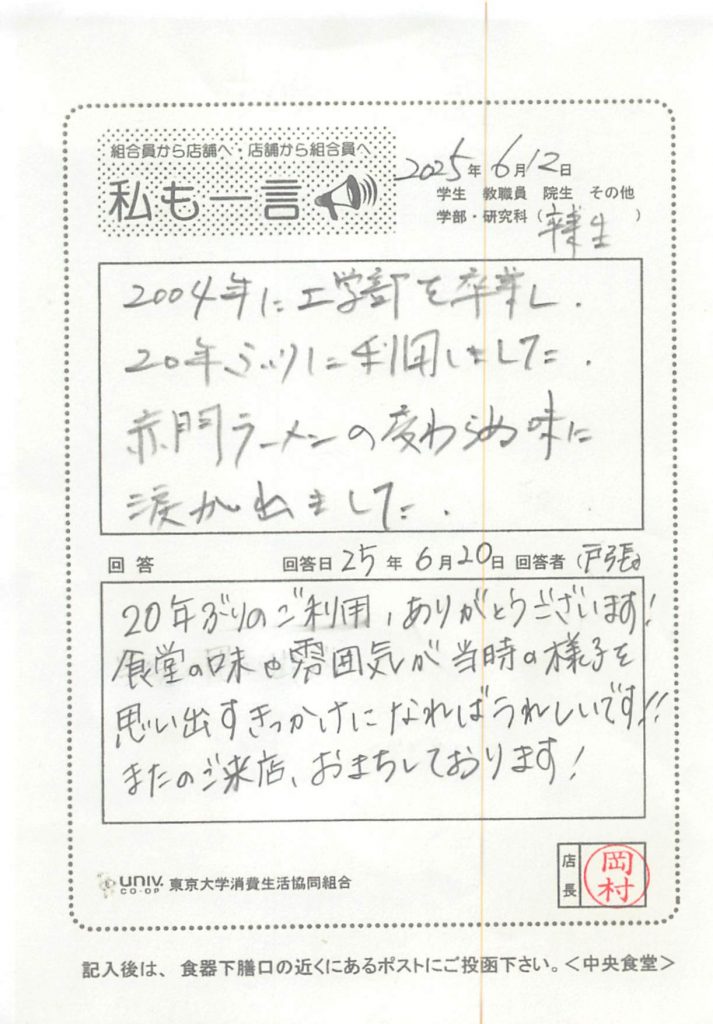 組合員から店舗へ・店舗から組合員へ
私も一言
2025年6月12日
学生 教職員 院生 その他
学部・研究科(卒業生)
2004年に工学部を卒業し、
20年ぶりに利用しました。
赤門ラーメンの変わらぬ味に
涙が出ました。
回答 回答日25年6月20日 回答者(戸張)
20年ぶりのご利用、ありがとうございます!
食堂の味や雰囲気が当時の様子を
思い出すきっかけになればうれしいです!!
またのご来店、おまちしております!
店長 岡村
UNIV. CO-OP 東京大学消費生活協同組合
記入後は、食器下膳口の近くにあるポストにご投函下さい。<中央食堂>